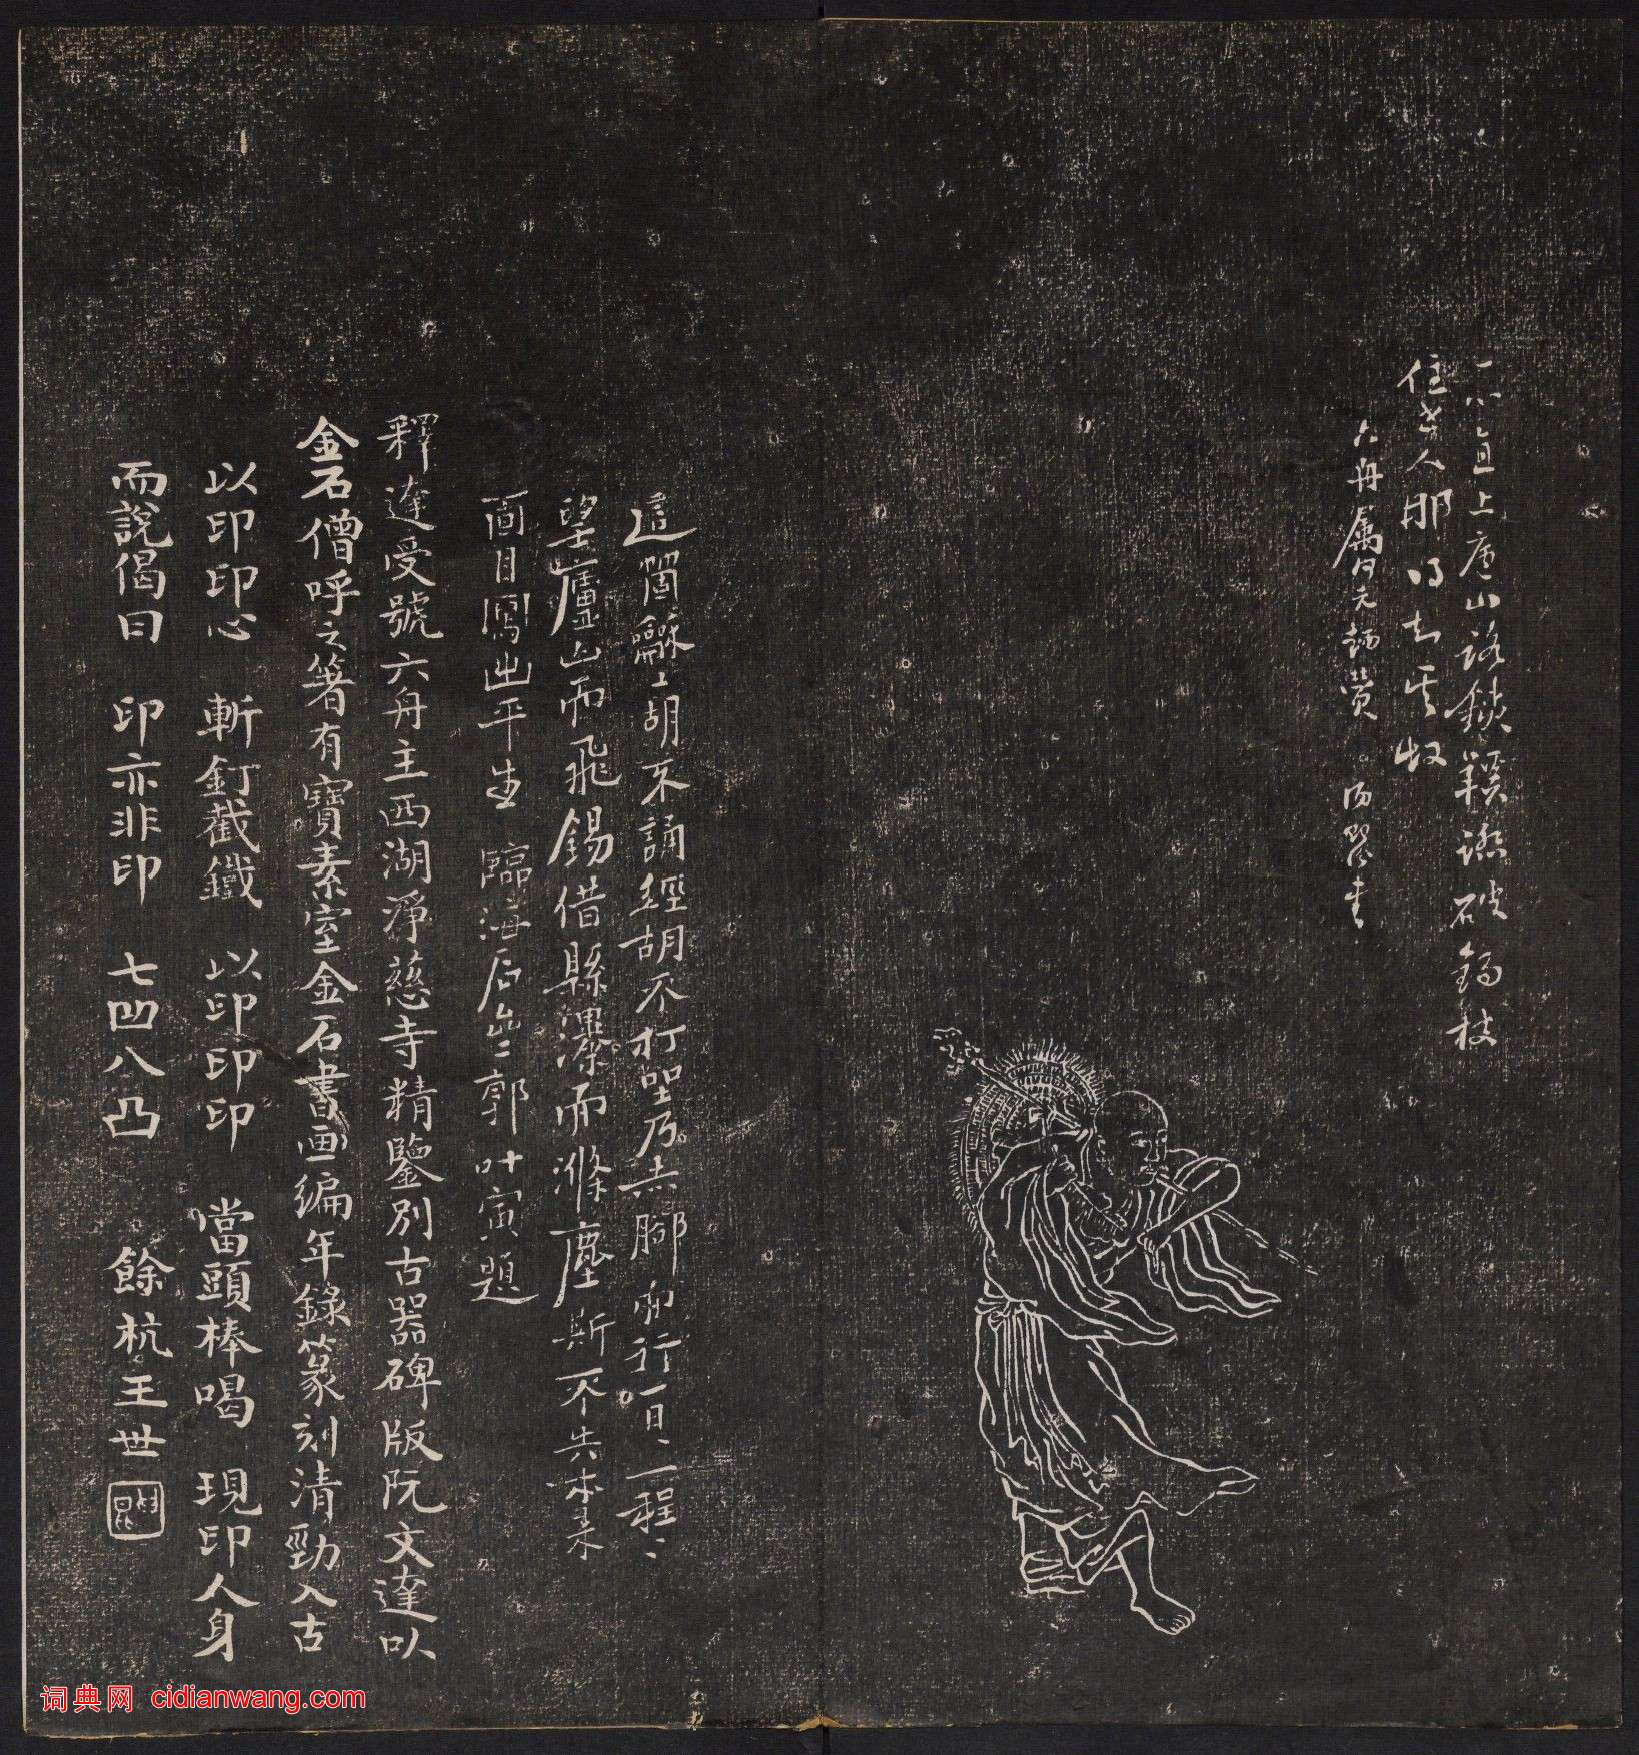 直上廬山路鐵鞵踏破錫枝
住世人那
六舟屬
這箇龢上胡不誦經胡不打坐乃赤腳而行一日二日一程二程
望廬山而飛錫借縣瀑而滌塵斯不失本來
面目闖出平生 臨海石 郭叶寅題
釋達受號六舟主西湖淨慈寺精鑒別古器碑版阮文達以
金石僧呼之箸有寶素室金石書画編年錄篆刻清勁入古
以印印心 斬釘截鐵 以印印印 當頭棒喝 現印人身
而說偈曰 印亦非印 七凹八凸 餘杭王世
词典网 cidianwang.com